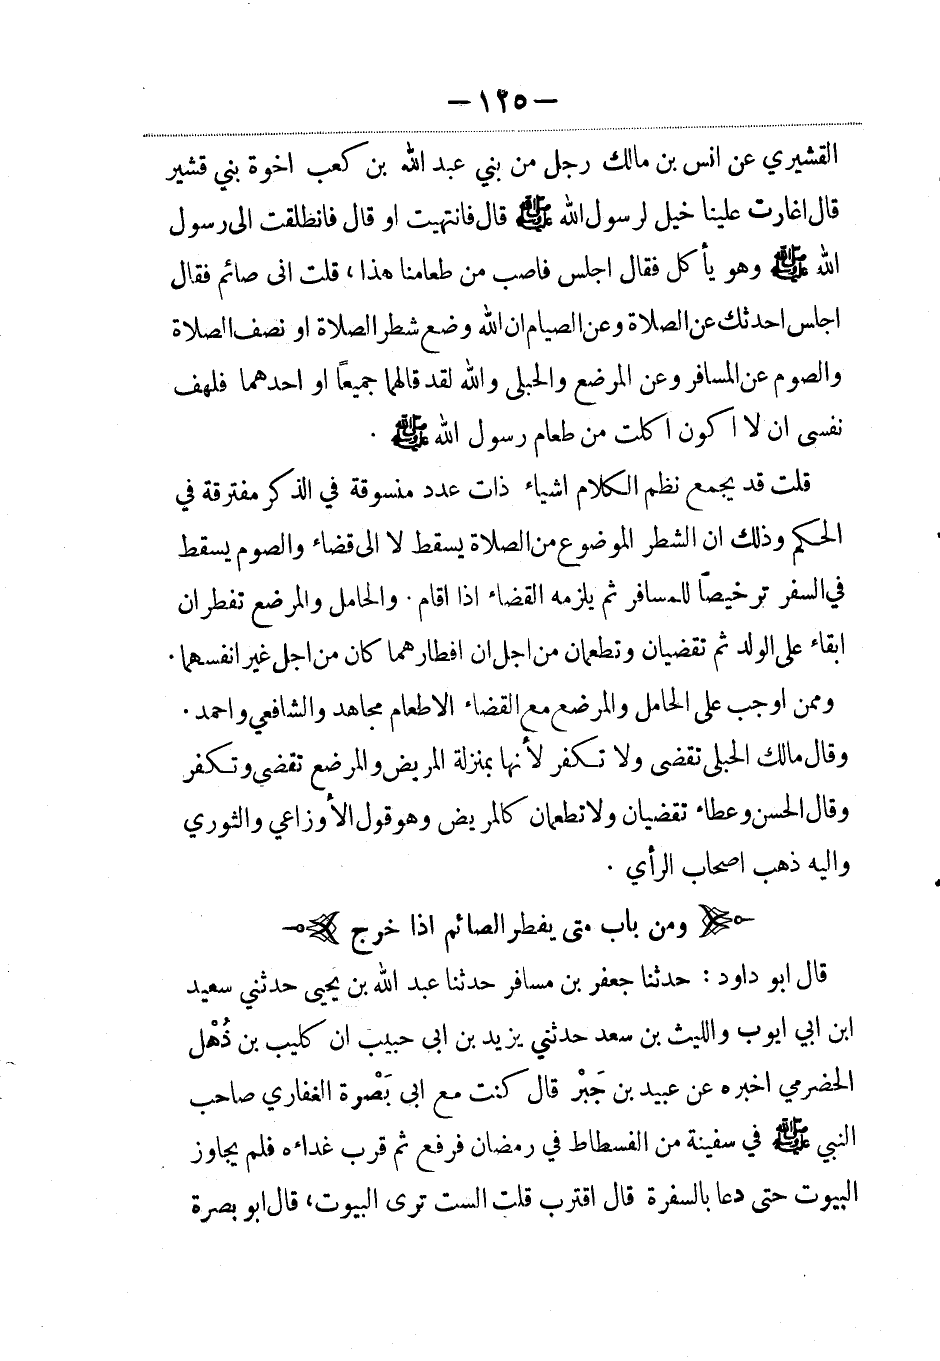 — ١٢٥ —
القشيري عن انس بن مالك رجل من بني عبد الله بن كعب اخوة بني قشير
قال اغارت علينا خيل لرسول الله ﷺ قال فانتهيت او قال فانطلقت الى رسول
الله ﷺ وهو يأكل فقال اجلس فاصب من طعامنا هذا، قلت انى صائم فقال
اجلس احدثك عن الصلاة وعن الصيام ان الله وضع شطر الصلاة او نصف الصلاة
والصوم عن المسافر وعن المرضع والحبلى والله لقد قالهما جميعًا او احدهما فلهف
نفسى ان لا اكون اكلت من طعام رسول الله ﷺ .
قلت قد يجمع نظم الكلام اشياء ذات عدد منسوقة في الذكر مفترقة في
الحكم وذلك ان الشطر الموضوع من الصلاة يسقط لا الى قضاء والصوم يسقط
في السفر ترخيصًا للمسافر ثم يلزمه القضاء اذا اقام . والحامل والمرضع تفطران
ابقاء على الولد ثم تقضيان وتطعمان من اجل ان افطارهما كان من اجل غير انفسهما .
وممن اوجب على الحامل والمرضع مع القضاء الاطعام مجاهد والشافعي واحمد .
وقال مالك الحبلى تقضى ولا تكفر لأنها بمنزلة المريض والمرضع تقضى وتكفر
وقال الحسن وعطاء تقضيان ولا تطعمان كالمريض وهو قول الأوزاعي والثوري
واليه ذهب اصحاب الرأي .
ومن باب متى يفطر الصائم اذا خرج
قال ابو داود : حدثنا جعفر بن مسافر حدثنا عبد الله بن يحيى حدثني سعيد
ابن ابي ايوب والليث بن سعد حدثني يزيد بن ابى حبيب ان كليب بن ذُهْل
الحضرمي اخبره عن عبيد بن جَبْر قال كنت مع ابى بَصْرة الغفاري صاحب
النبي ﷺ في سفينة من الفسطاط في رمضان فرفع ثم قرب غداءه فلم يجاوز
البيوت حتى دعا بالسفرة قال اقترب قلت الست ترى البيوت، قال ابو بصرة